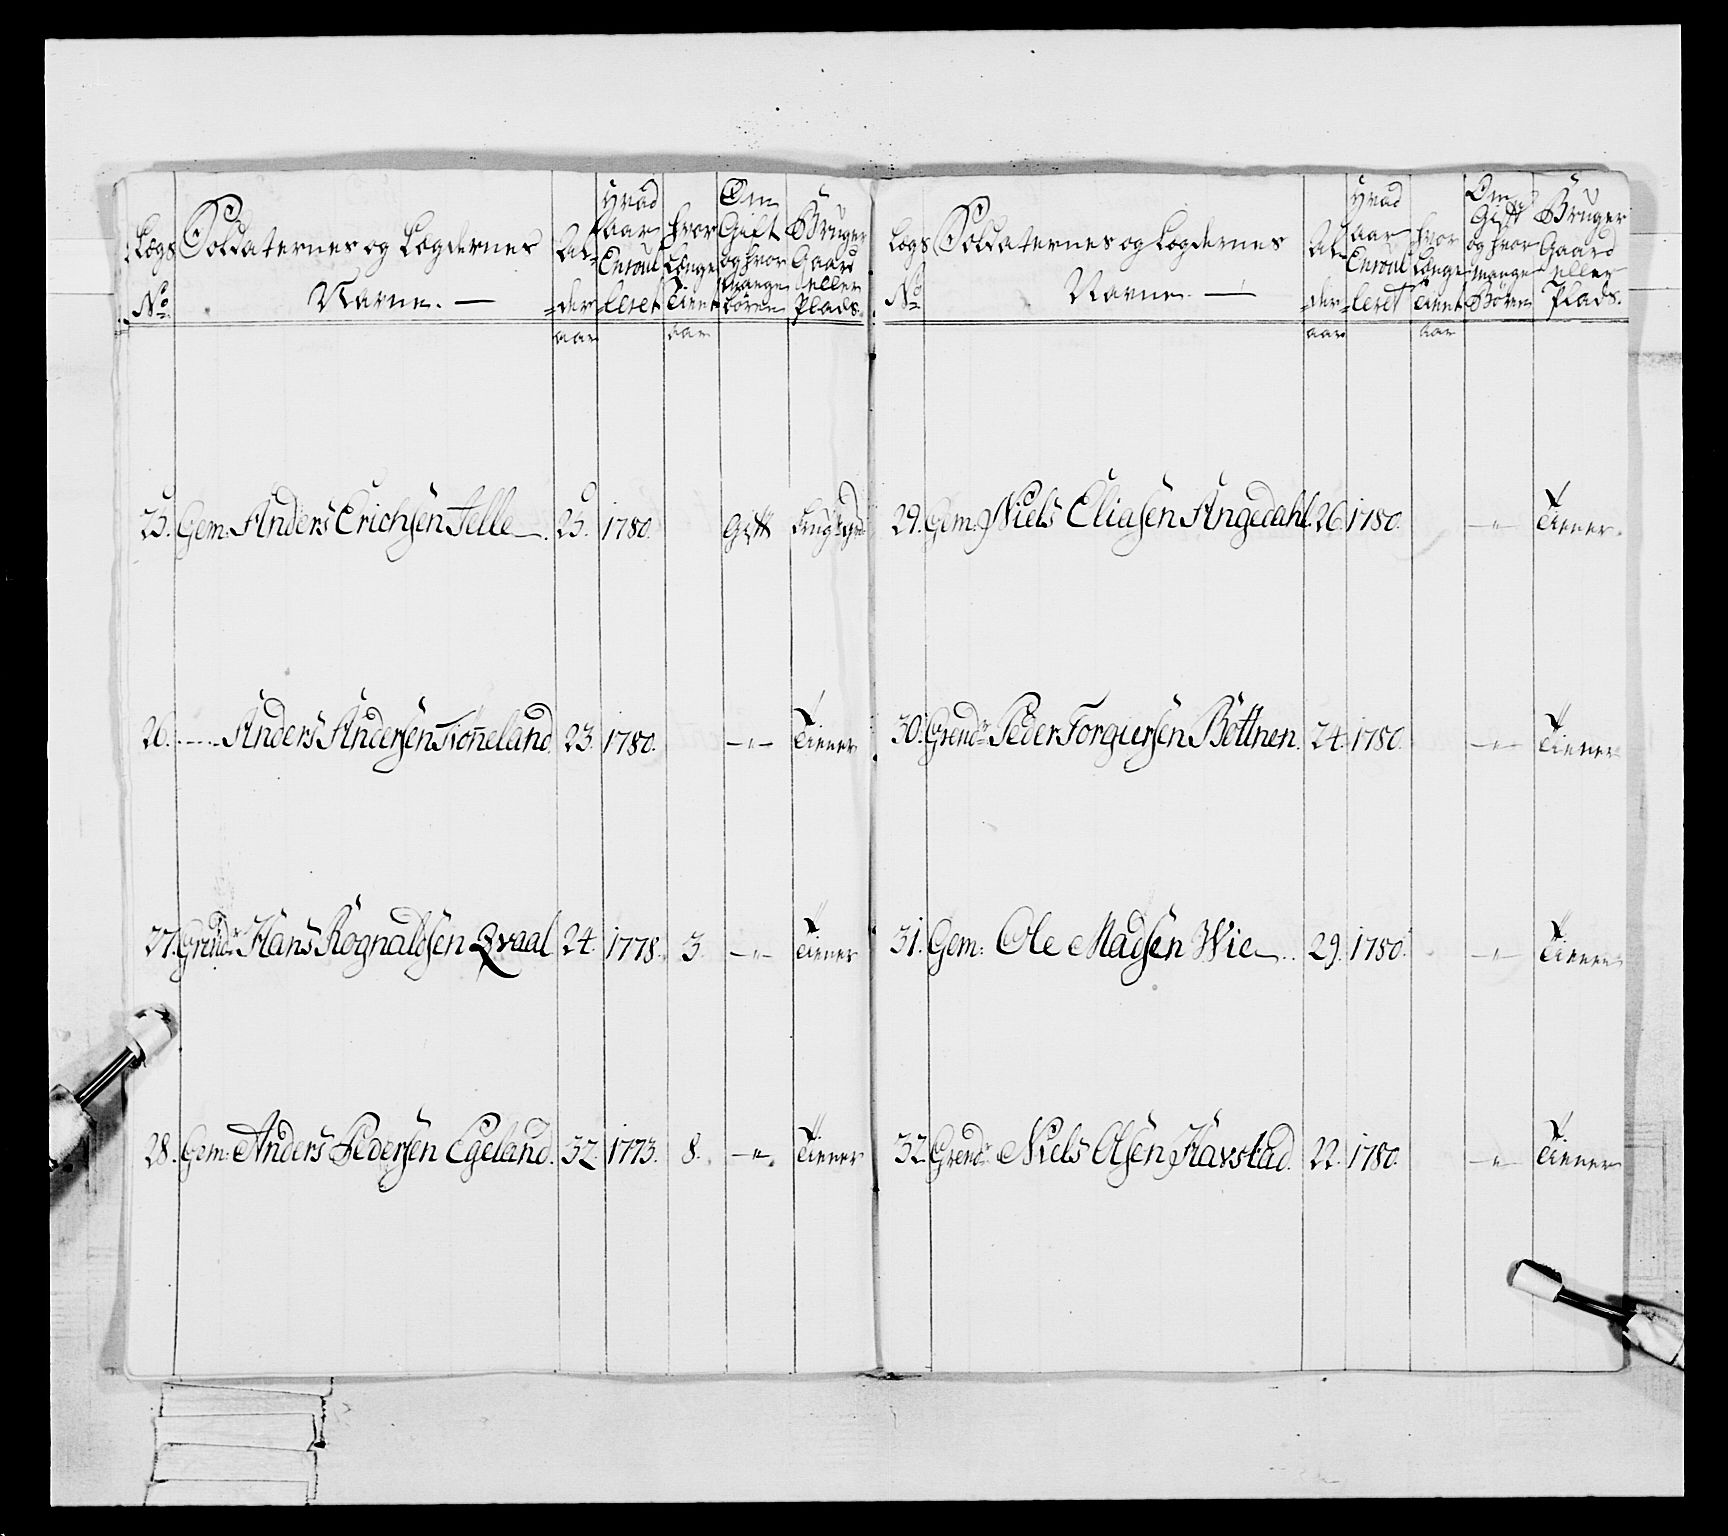 Logs No. Soldaternes og Logdernes Navne. — Al=der Hvad Aar Enroul=leret Hvor Længe Tient Om Gift og hvor Mange Børen Bruger Gaard eller Plads.
aar aar
25. Gem: Anders Erichsen Telle 25. 1780. Gift
26. Anders Andersen Troneland 23. 1780. —"— Tiener
27. Grend:r Hans Rognaldsen Qvaal 24. 1778. 3. —"— Tiener
28. Gem: Anders Pedersen Egeland. 32. 1773. 8. —"— Tiener
Logs No. Soldaternes og Logdernes Navne. — Al=der Hvad Aar Enroul=leret Hvor Længe Tient Om Gift og hvor mange Børen Bruger Gaard eller Plads.
aar aar
29. Gem: Niels Eliasen Angedahl. 26. 1780. —"— Tiener.
30. Grend:r Peder Torgiersen Bottnen. 24. 1780. —"— Tiener
31. Gem: Ole Madsen Wie 29. 1780. —"— Tiener
32. Grend:r Niels Olsen Havstad. 22. 1780. —"— Tiener